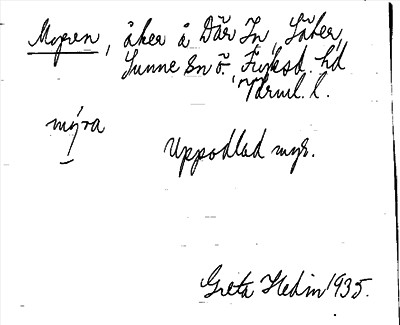 Myren, åker å Där In, Såker,
Sunne sn ö. Fryksd. hd
Värml. l.
mýra
Uppodlad myr.
Greta Hedin 1935.